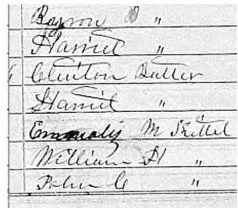 Byron D "
Harriet "
Clinton Butler
Harriet "
M Kittel
William H "
John C "